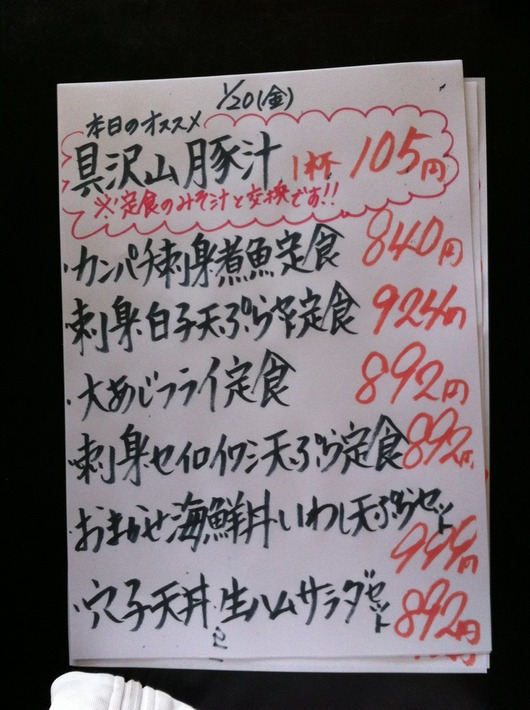 1/20(金)
本日のオススメ
具沢山豚汁 1杯 105円
※定食のみそ汁と交換です!!
・カンパチ刺身煮魚定食 840円
・刺身白子天ぷら定食 924円
・大あじフライ定食 892円
・刺身セイロイワシ天ぷら定食 892円
・おまかせ海鮮丼いわし天ぷらセット
999円
・穴子天丼生ハムサラダセット 892円